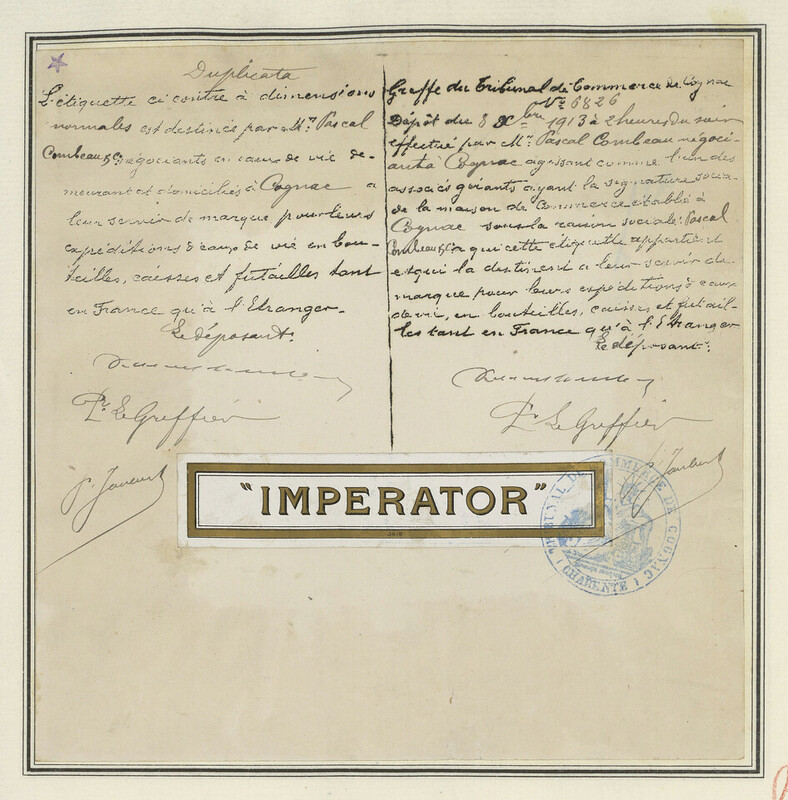 Duplicata
L'étiquette ci contre à dimensions
normales est destinée par Mrs Pascal
Combeau & Cie négociants en eaux de vie de-
meurant et domiciliés à Cognac a
leur servir de marque pour leurs
expéditions d'eaux de vie en bou-
teilles, caisses et futailles tant
en France qu'à l'Etranger.
Le déposant.
Pr Le Greffier
Greffe du Tribunal de Commerce de Cognac
No 6826
Dépôt du 8 Xbre 1913 à 2 heures du soir
effectué par Mr Pascal Combeau négoci-
ant à Cognac agissant comme l'un des
associés gérants ayant la signature socia-
de la maison de Commerce établie à
Cognac sous la raison sociale: Pascal
Combeau & Cie a qui cette étiquette appartient
et qui la destinent a leur servir de
marque pour leurs expéditions d'eaux
de vie, en bouteilles, caisses et futail-
les tant en France qu'à l'Etranger
Le déposant.
Pr Le Greffier
"IMPERATOR"
TRIBUNAL DE COMMERCE DE COGNAC
(CHARENTE)